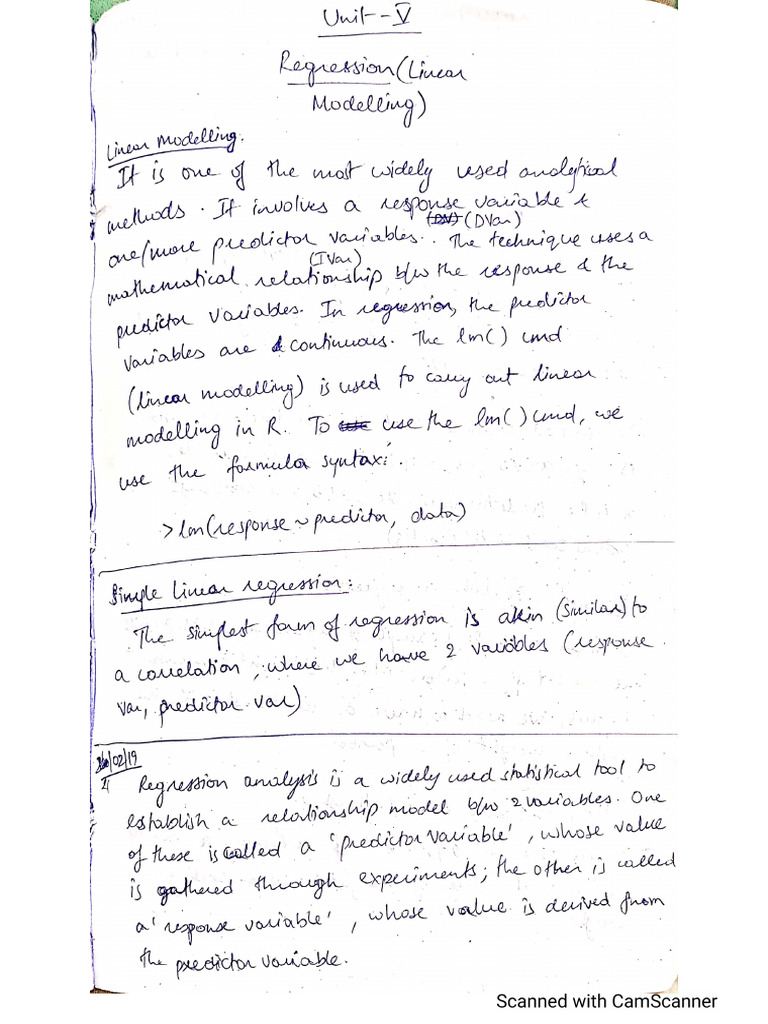 Unit-V
Regression (Linear
Modelling)
Linear Modelling.
It is one of the most widely used analytical
methods. It involves a response variable &
(DVar)
one/more predictor variables. The technique uses a
(IVar)
mathematical relationship b/w the response & the
predictor variables. In regression, the predictor
variables are continuous. The lm() cmd
(linear modelling) is used to carry out linear
modelling in R. To use the lm() cmd, we
use the "formula syntax:".
>lm(response ~ predictor, data)
Simple Linear regression:
The simplest form of regression is akin (similar) to
a correlation, where we have 2 variables (response
var, predictor var)
/02/19
Regression analysis is a widely used statistical tool to
establish a relationship model b/w 2 variables. One
of these is called a 'predictor variable', whose value
is gathered through experiments; the other is called
a 'response variable', whose value is derived from
the predictor variable.
Scanned with CamScanner